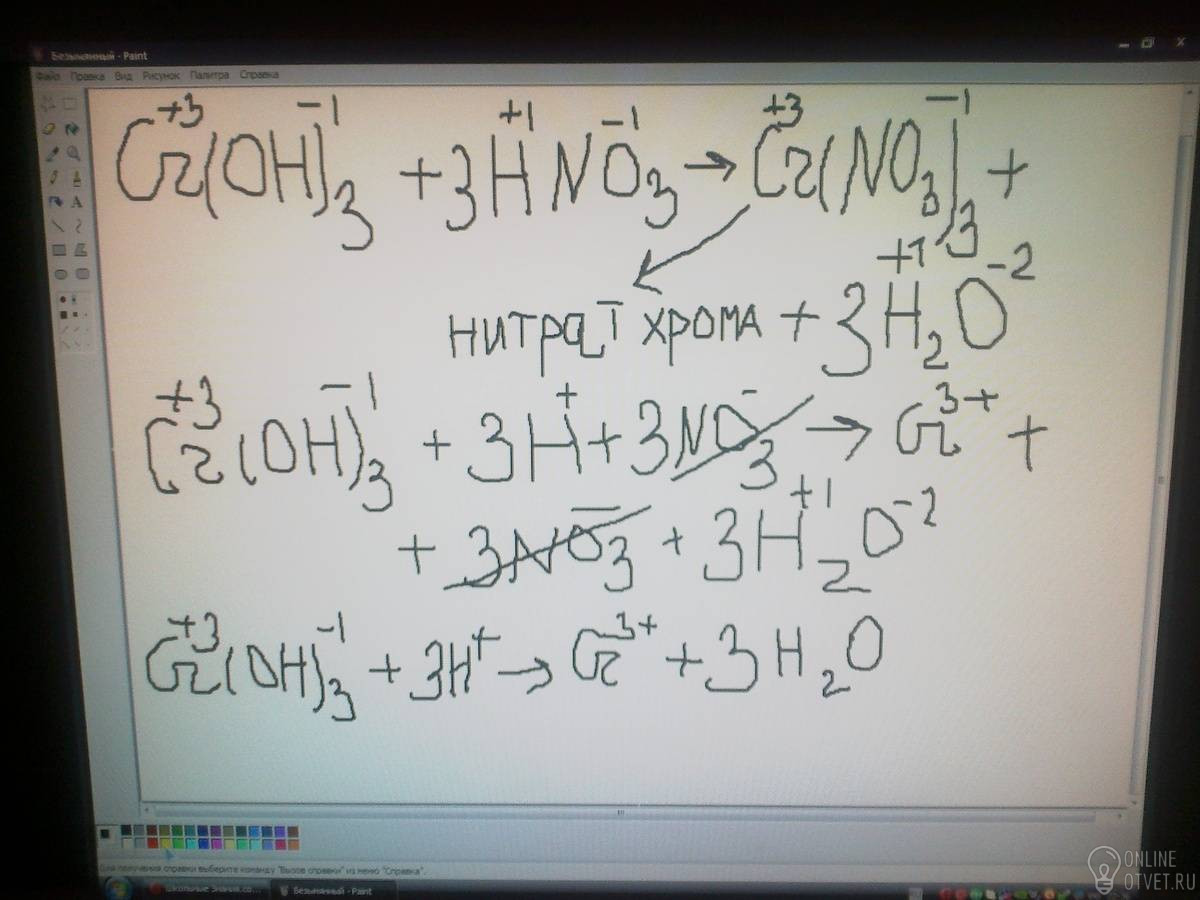 Безымянный - Paint
Файл Правка Вид Рисунок Палитра Справка
Cr⁺³(OH)₃⁻¹ + 3H⁺¹NO₃⁻¹ → Cr⁺³(NO₃)₃⁻¹ +
нитрат хрома + 3H₂⁺¹O⁻²
Cr⁺³(OH)₃⁻¹ + 3H⁺ + 3NO₃⁻ → Cr³⁺ +
+ 3NO₃⁻ + 3H₂⁺¹O⁻²
Cr⁺³(OH)₃⁻¹ + 3H⁺ → Cr³⁺ + 3H₂O
Для получения справки выберите команду "Вызов справки" из меню "Справка".
Школьные Знания.co... Безымянный - Paint
ONLINE
OTVET.RU